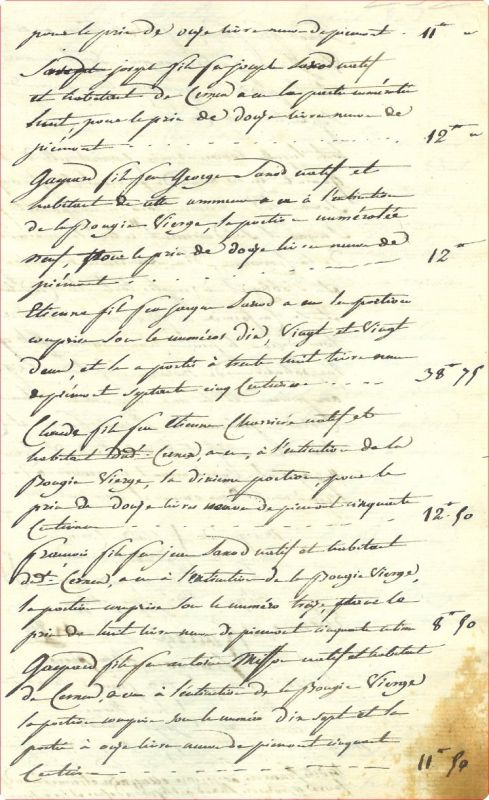 pour le prix de onze livre neuve de piemont . 11 "
joseph fils feu joseph natif
et habitant de Cernex a eu la portion numérotée
huit, pour le prix de douze livre neuve de
piémont 12 "
Gaspard fils feu George natif et
habitant de cette commune a eu à l'extinction
de la Bougie Vierge, la portion numérotée
neuf pour le prix de douze livre neuve de
piémont 12 "
Etienne fils feu jaques a eu la portion
comprise sou le numéros dix, Vingt et Vingt
deux, et la portée à trente huit livre neuve
de piémont septante cinq Centimes 38 75
Claude fils feu Etienne natif et
habitant dud. Cernex, a eu, à l'extinction de la
Bougie Vierge, la dixieme portion pour le
prix de douze livres neuve de piemont cinquante
Centimes 12 . 50
françois fils feu jean natif et habitant
dud. Cernex, a eu à l'extinction de la Bougie Vierge,
la portion comprise sou le numéro pour le
prix de huit livre neuve de piemont cinquante 8 50
Gaspard fils feu antoine natif et habitant
de Cernex, a eu à l'extinction de la Bougie Vierge
la portion comprise sou le numéro dix sept et la
portée à onze livre neuve de piemont cinquante
Centimes 11 50